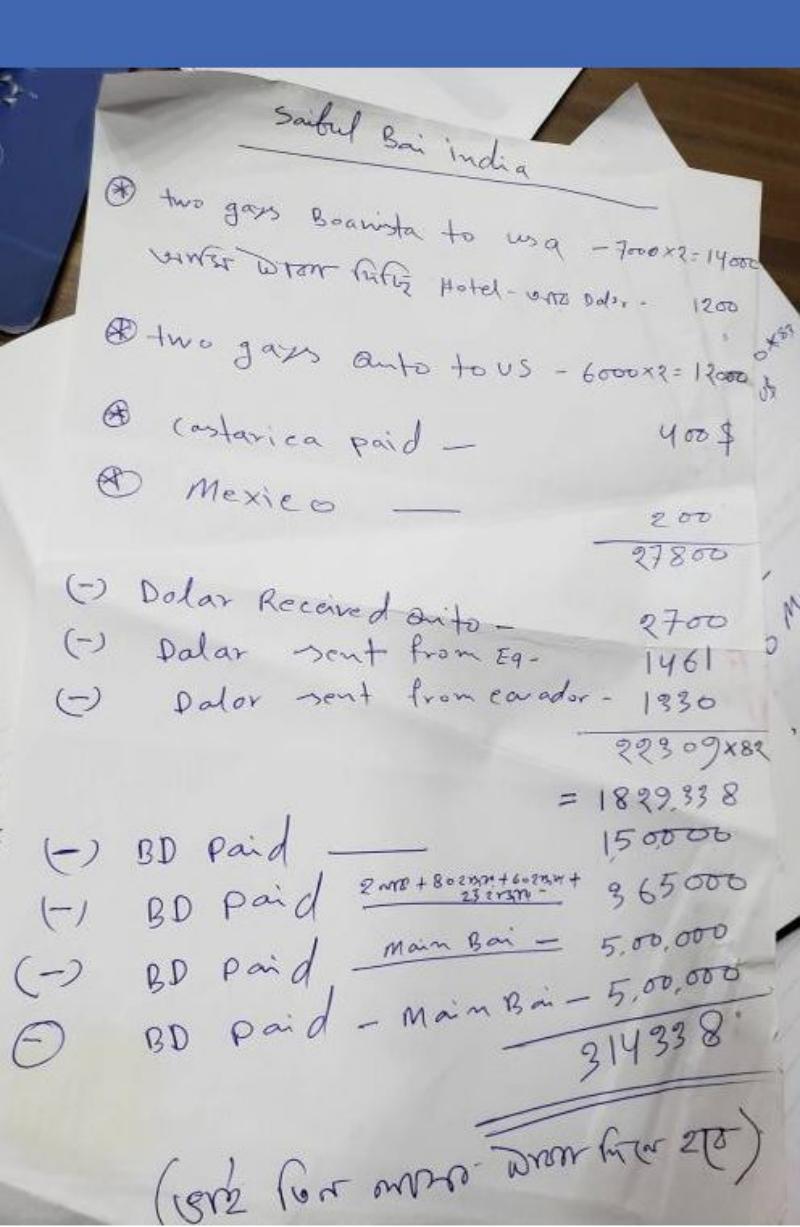 Saiful Bai india
* two gays Boavista to usa - 7000×2=14000
টাকা দিছি Hotel - Dolar - 1200
* two gays quito to US - 6000×2=12000
* Castarica paid - 400$
* Mexico — 200
27800
(-) Dolar Received quito - 2700
(-) Dalar sent from Eq - 1461
(-) Dalor sent from ecuador - 1330
22309×82
= 1829.338
(-) BD paid — 150000
(-) BD paid 2 লাখ + 80 হাজার + 60 হাজার + 25 হাজার - 365000
(-) BD paid Main Bai - 5,00,000
(-) BD paid - Main Bai - 5,00,000
314338
(ভাই তিন লাখ টাকা দিতে হবে)